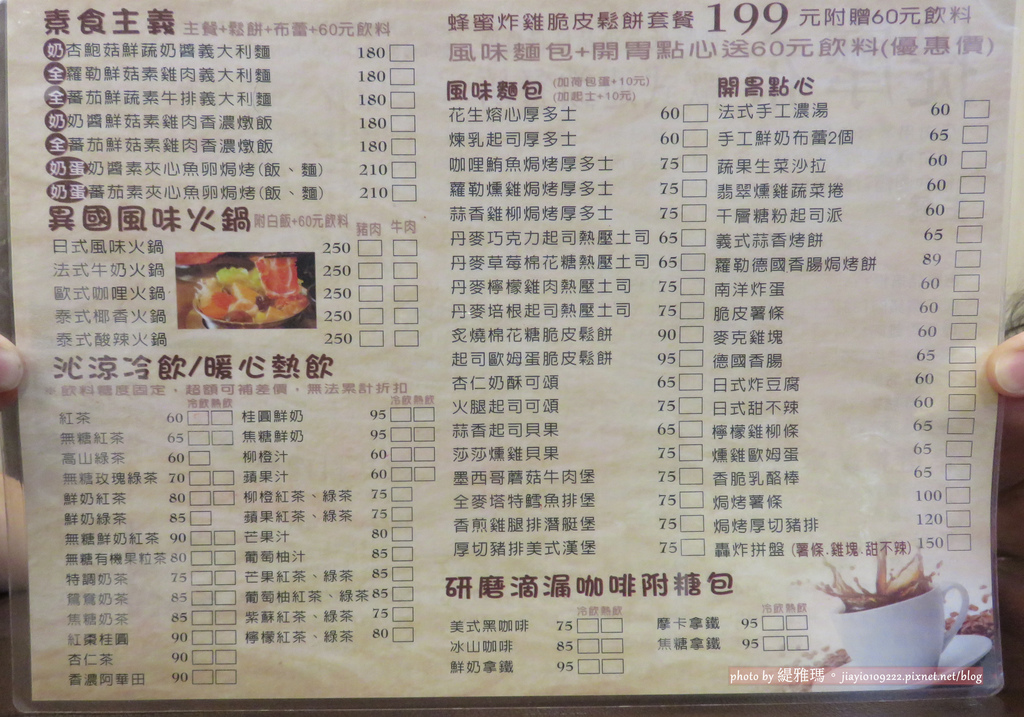 素食主義 主餐+鬆餅+布蕾+60元飲料
奶 杏鮑菇鮮蔬奶醬義大利麵 180
全 蘿勒鮮菇素雞肉義大利麵 180
全 蕃茄鮮蔬素牛排義大利麵 180
奶 奶醬鮮菇素雞肉香濃燉飯 180
全 蕃茄鮮菇素雞肉香濃燉飯 180
奶蛋 奶醬素夾心魚卵焗烤(飯、麵) 210
奶蛋 蕃茄素夾心魚卵焗烤(飯、麵) 210
異國風味火鍋 附白飯+60元飲料 豬肉 牛肉
日式風味火鍋 250
法式牛奶火鍋 250
歐式咖哩火鍋 250
泰式椰香火鍋 250
泰式酸辣火鍋 250
沁涼冷飲/暖心熱飲
※飲料糖度固定、超額可補差價,無法累計折扣
冷飲 熱飲
紅茶 60
無糖紅茶 65
高山綠茶 60
無糖玫瑰綠茶 70
鮮奶紅茶 80
鮮奶綠茶 85
無糖鮮奶紅茶 90
無糖有機果粒茶 80
特調奶茶 75
鴛鴦奶茶 85
焦糖奶茶 85
紅棗桂圓 90
杏仁茶 90
香濃阿華田 90
冷飲 熱飲
桂圓鮮奶 95
焦糖鮮奶 95
柳橙汁 60
蘋果汁 60
柳橙紅茶、綠茶 75
蘋果紅茶、綠茶 75
芒果汁 80
葡萄柚汁 85
芒果紅茶、綠茶 85
葡萄柚紅茶、綠茶 85
紫蘇紅茶、綠茶 75
檸檬紅茶、綠茶 80
蜂蜜炸雞脆皮鬆餅套餐 199 元附贈60元飲料
風味麵包+開胃點心送60元飲料(優惠價)
風味麵包 (加荷包蛋+10元)
(加起士+10元)
花生熔心厚多士 60
煉乳起司厚多士 60
咖哩鮪魚焗烤厚多士 75
蘿勒燻雞焗烤厚多士 75
蒜香雞柳焗烤厚多士 75
丹麥巧克力起司熱壓土司 65
丹麥草莓棉花糖熱壓土司 65
丹麥檸檬雞肉熱壓土司 75
丹麥培根起司熱壓土司 75
炙燒棉花糖脆皮鬆餅 90
起司歐姆蛋脆皮鬆餅 95
杏仁奶酥可頌 65
火腿起司可頌 75
蒜香起司貝果 65
莎莎燻雞貝果 75
墨西哥蘑菇牛肉堡 75
全麥塔特鱈魚排堡 75
香煎雞腿排潛艇堡 75
厚切豬排美式漢堡 75
開胃點心
法式手工濃湯 60
手工鮮奶布蕾2個 65
蔬果生菜沙拉 60
翡翠燻雞蔬菜捲 60
千層糖粉起司派 60
義式蒜香烤餅 65
蘿勒德國香腸焗烤餅 89
南洋炸蛋 60
脆皮薯條 60
麥克雞塊 60
德國香腸 65
日式炸豆腐 60
日式甜不辣 60
檸檬雞柳條 65
燻雞歐姆蛋 65
香脆乳酪棒 65
焗烤薯條 100
焗烤厚切豬排 120
轟炸拼盤 (薯條.雞塊.甜不辣) 150
研磨滴漏咖啡附糖包
冷飲 熱飲
美式黑咖啡 75
冰山咖啡 85
鮮奶拿鐵 95
冷飲 熱飲
摩卡拿鐵 95
焦糖拿鐵 95
photo by 緹雅瑪。jiayio109222.pixnet.net/blog